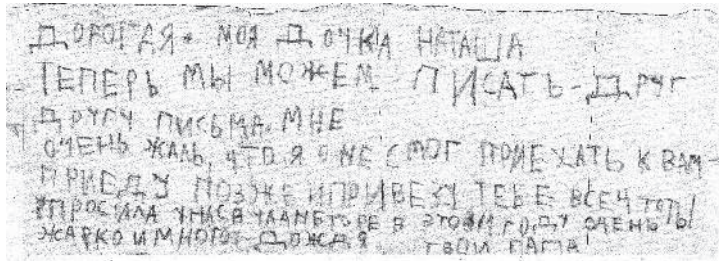 ДОРОГАЯ МОЯ ДОЧКА НАТАША
ТЕПЕРЬ МЫ МОЖЕМ ПИСАТЬ-ДРУГ
ДРУГУ ПИСЬМА. МНЕ
ОЧЕНЬ ЖАЛЬ, ЧТО Я НЕ СМОГ ПРИЕХАТЬ К ВАМ-
ПРИЕДУ ПОЗЖЕ И ПРИВЕЗУ ТЕБЕ ВСЕ
ПРОСИЛА У НАС В В ЭТОМ ГОДУ ОЧЕНЬ
ЖАРКО И МНОГО ДОЖДЯ. ТВОИ ПАПА